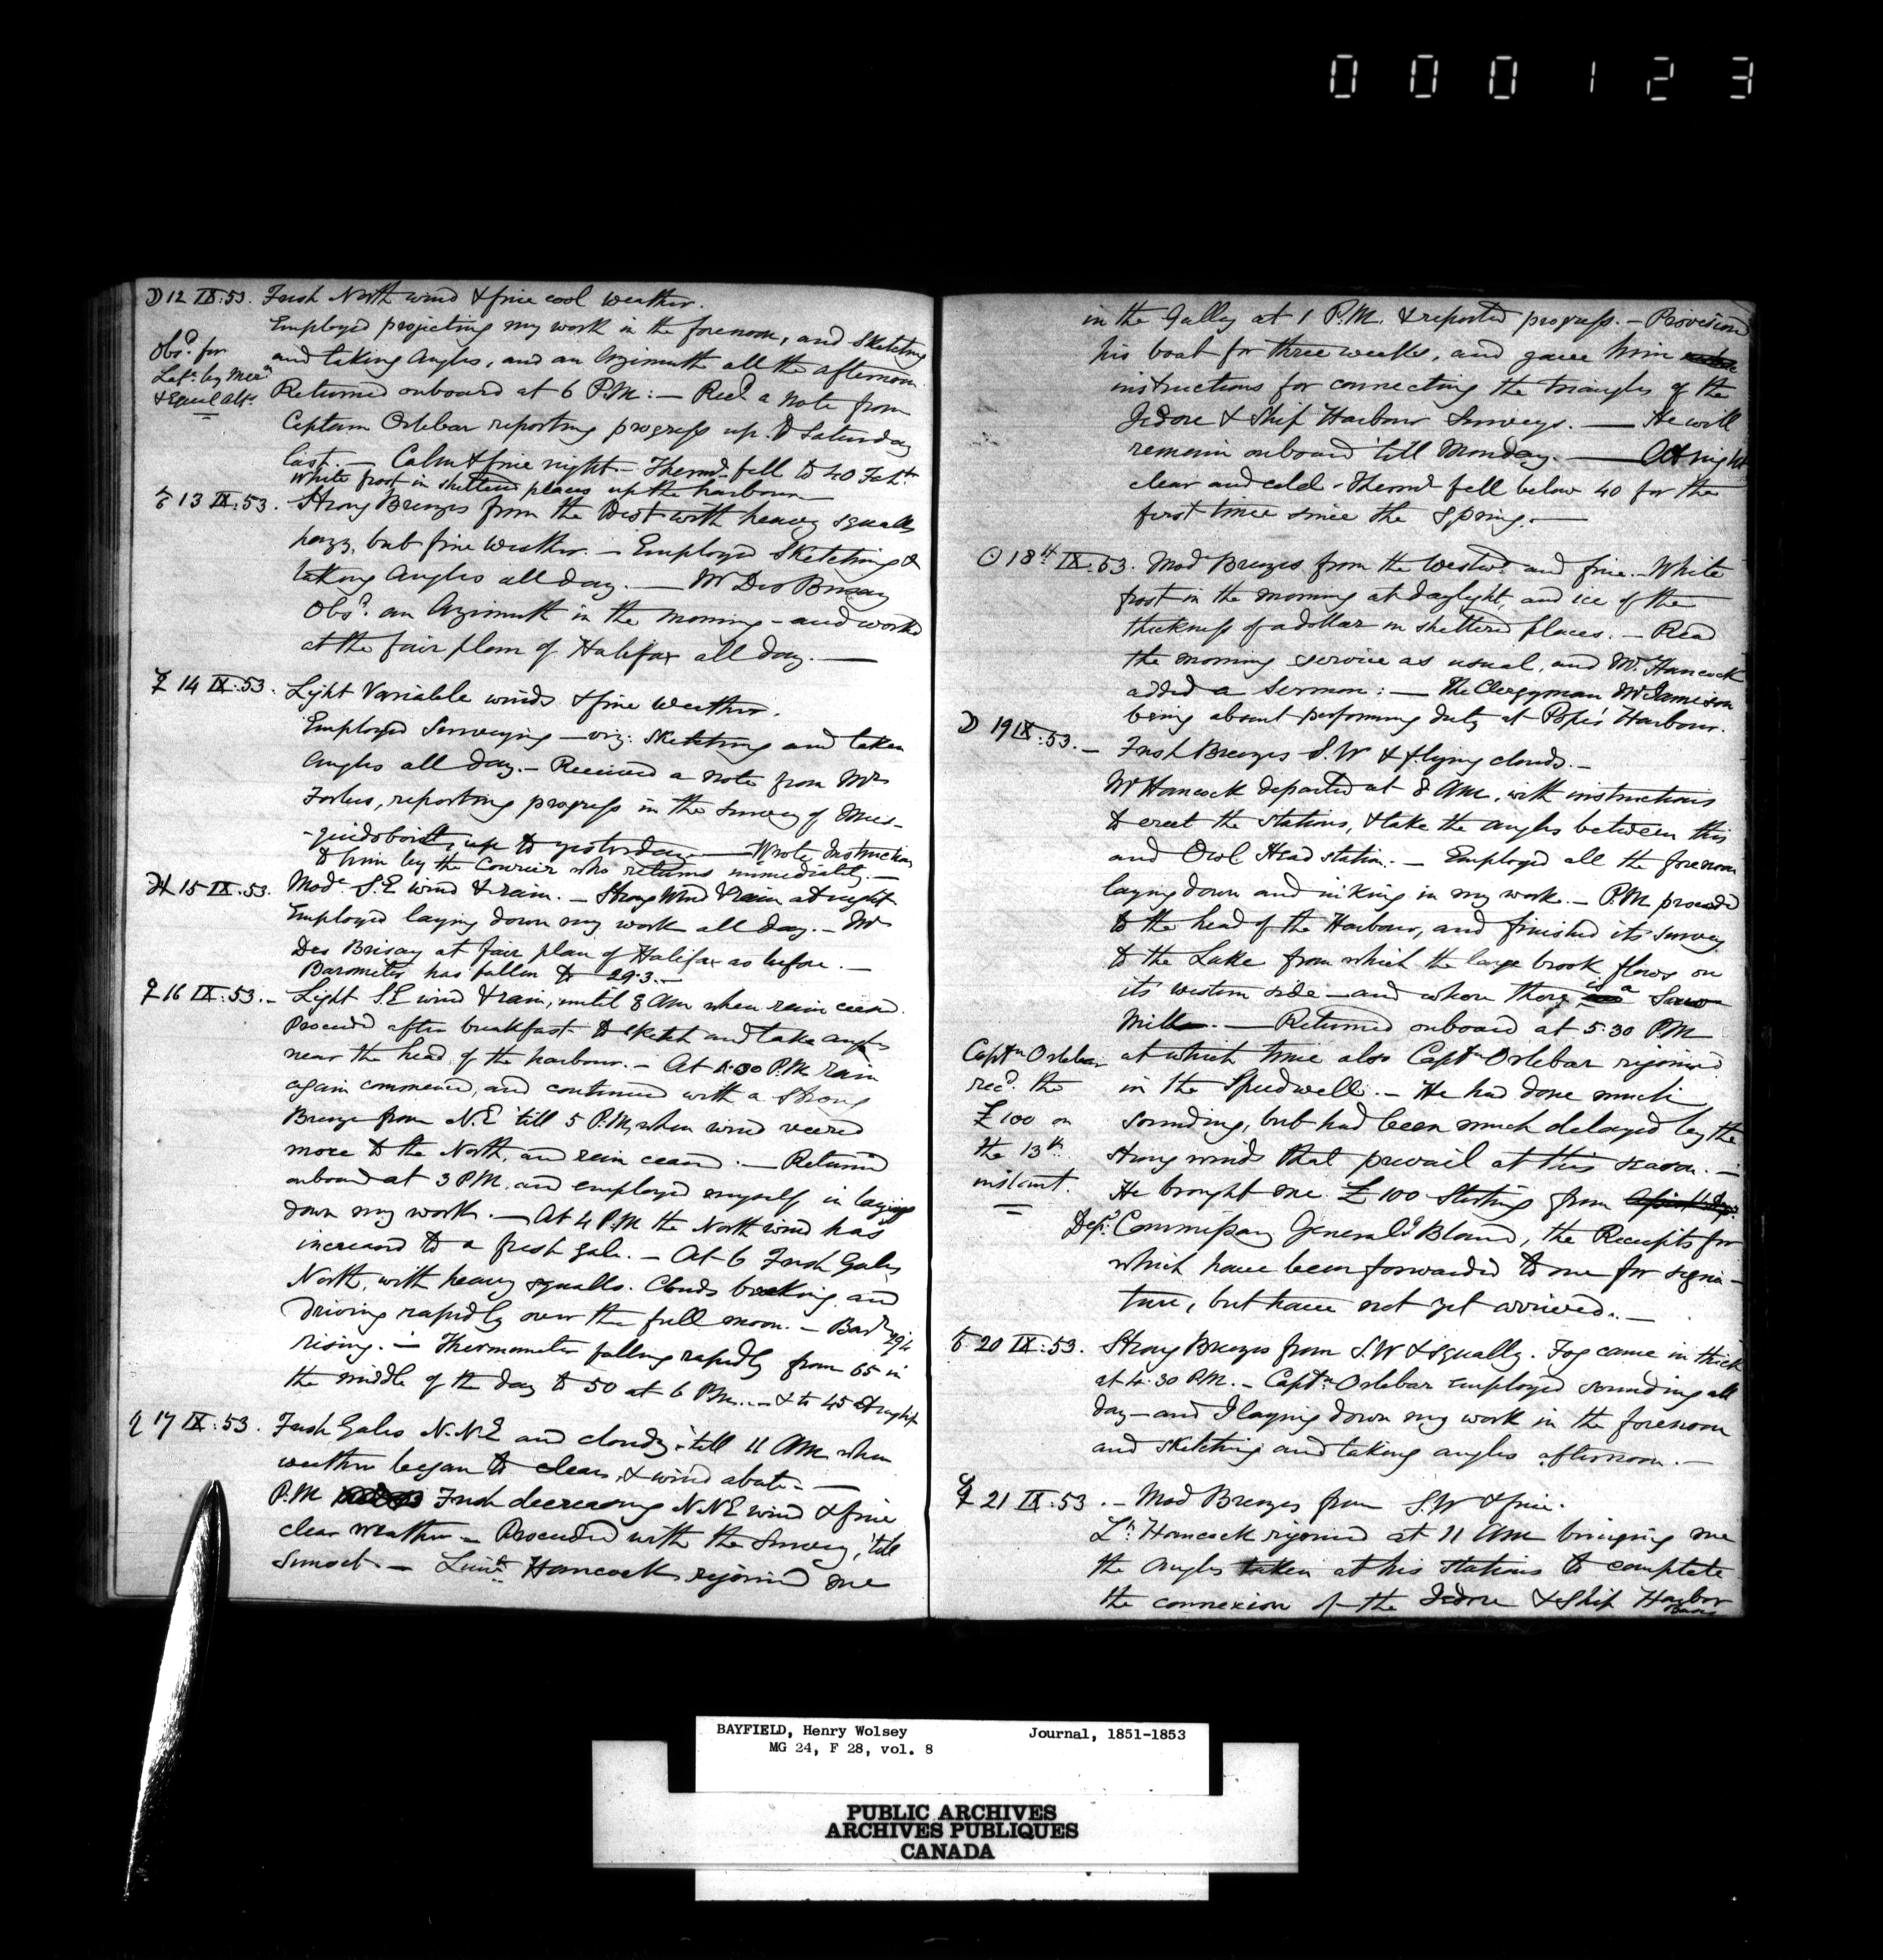 000123
☽ 12 IX:53. Fresh North wind & fine cool weather.
Employed projecting my work in the forenoon, and sketching
and taking angles, and an Azimuth all the afternoon.
Obsd. for
Latt. by Merr.
& Equal Alts.
Returned onboard at 6 P.M: — Recd a note from
Captain Orlebar reporting progress up to Saturday
last. — Calm & fine night — Thermr. fell to 40 Faht.
White frost in sheltered places up the harbour —
13 IX:53. Strong Breezes from the West with heavy squalls
hazy, but fine weather. — Employed sketching &
taking angles all day. — Mr Des Brisay
Obsd. an Azimuth in the morning — and worked
at the fair plan of Halifax all day. —
14 IX:53. Light Variable winds & fine weather.
Employed Surveying — viz: sketching and taken
angles all day. — Received a note from Mr
Forbes, reporting progress in the survey of Mus-
-quidoboit, up to yesterday — Wrote Instructions
to him by the Courier who returns immediately. —
15 IX:53. Mode S.E wind & rain. — Strong Wind & rain at night
Employed laying down my work all day. — Mr
Des Brisay at fair plan of Halifax as before. —
Barometer has fallen to 29.3. —
♀ 16 IX:53. — Light S.E wind & rain, until 8 AM when rain ceased.
Proceeded after breakfast to sketch and take angles
near the head of the harbour. — At 1.30 P.M. rain
again commenced, and continued with a strong
Breeze from N.E 'till 5 P.M, when wind veered
more to the North, and rain ceased. — Returned
onboard at 3 PM. and employed myself in laying
down my work. — At 4 P.M. the North wind has
increased to a fresh gale. — At 6 Fresh Gales
North, with heavy squalls. Clouds breaking and
driving rapidly over the full moon. — Barr. 29.4
rising. — Thermometer falling rapidly from 65 in
the middle of the day to 50 at 6 PM. — & to 45 at night
17 IX:53. Fresh Gales N.N.E and cloudy 'till 11 AM when
weather began to clear, & wind abate. —
P.M Fresh decreasing N.NE wind & fine
clear weather — Proceeded with the Survey, 'till
Sunset. — Lieut. Hancock rejoined me
in the Gulley at 1 P.M. & reported progress. — Provisioned
his boat for three weeks, and gave him
instructions for connecting the triangles of the
Jedore & Ship Harbour Surveys. — He will
remain onboard 'till Monday. — At night
clear and cold. Thermr fell below 40 for the
first time since the spring. —
☉ 18th IX.53. Mod Breezes from the Westwd. and fine. — White
frost in the morning at daylight, and ice of the
thickness of a dollar in sheltered places. — Read
the morning service as usual, and Mr. Hancock
added a Sermon: — The Clergyman Mr Jamieson
being absent performing duty at Pope's Harbour.
☽ 19 IX:53. — Fresh Breezes S.W & flying clouds. —
Mr Hancock departed at 8 AM, with instructions
to erect the stations, & take the angles between this
and Owl Head station. — Employed all the forenoon
laying down and inking in my work. — P.M proceeded
to the head of the Harbour, and finished its survey
to the Lake from which the large brook flows on
its western side — and where there is a Saw
Mill. — Returned onboard at 5.30 PM
at which time also Captn Orlebar rejoined
in the Speedwell. — He had done much
sounding, but had been much delayed by the
strong winds that prevail at this season. —
He brought me £100 Sterling from
Depy. Commissary General Bland, the Receipts for
which have been forwarded to me for signa-
ture, but have not yet arrived. —
Captn Orlebar
recd. the
£100 on
the 13th
instant.
20 IX:53. Strong Breezes from S.W & squally. Fog came in thick
at 4.30 P.M. — Captn. Orlebar employed sounding all
day — and I laying down my work in the forenoon
and sketching and taking angles afternoon. —
21 IX:53. — Mod Breezes from S.W & fine.
Lt. Hancock rejoined at 11 AM bringing me
the angles taken at his stations to complete
the connexion of the Jedore & Ship Harbor
Bases
BAYFIELD, Henry Wolsey Journal, 1851-1853
MG 24, F 28, vol. 8
PUBLIC ARCHIVES
ARCHIVES PUBLIQUES
CANADA